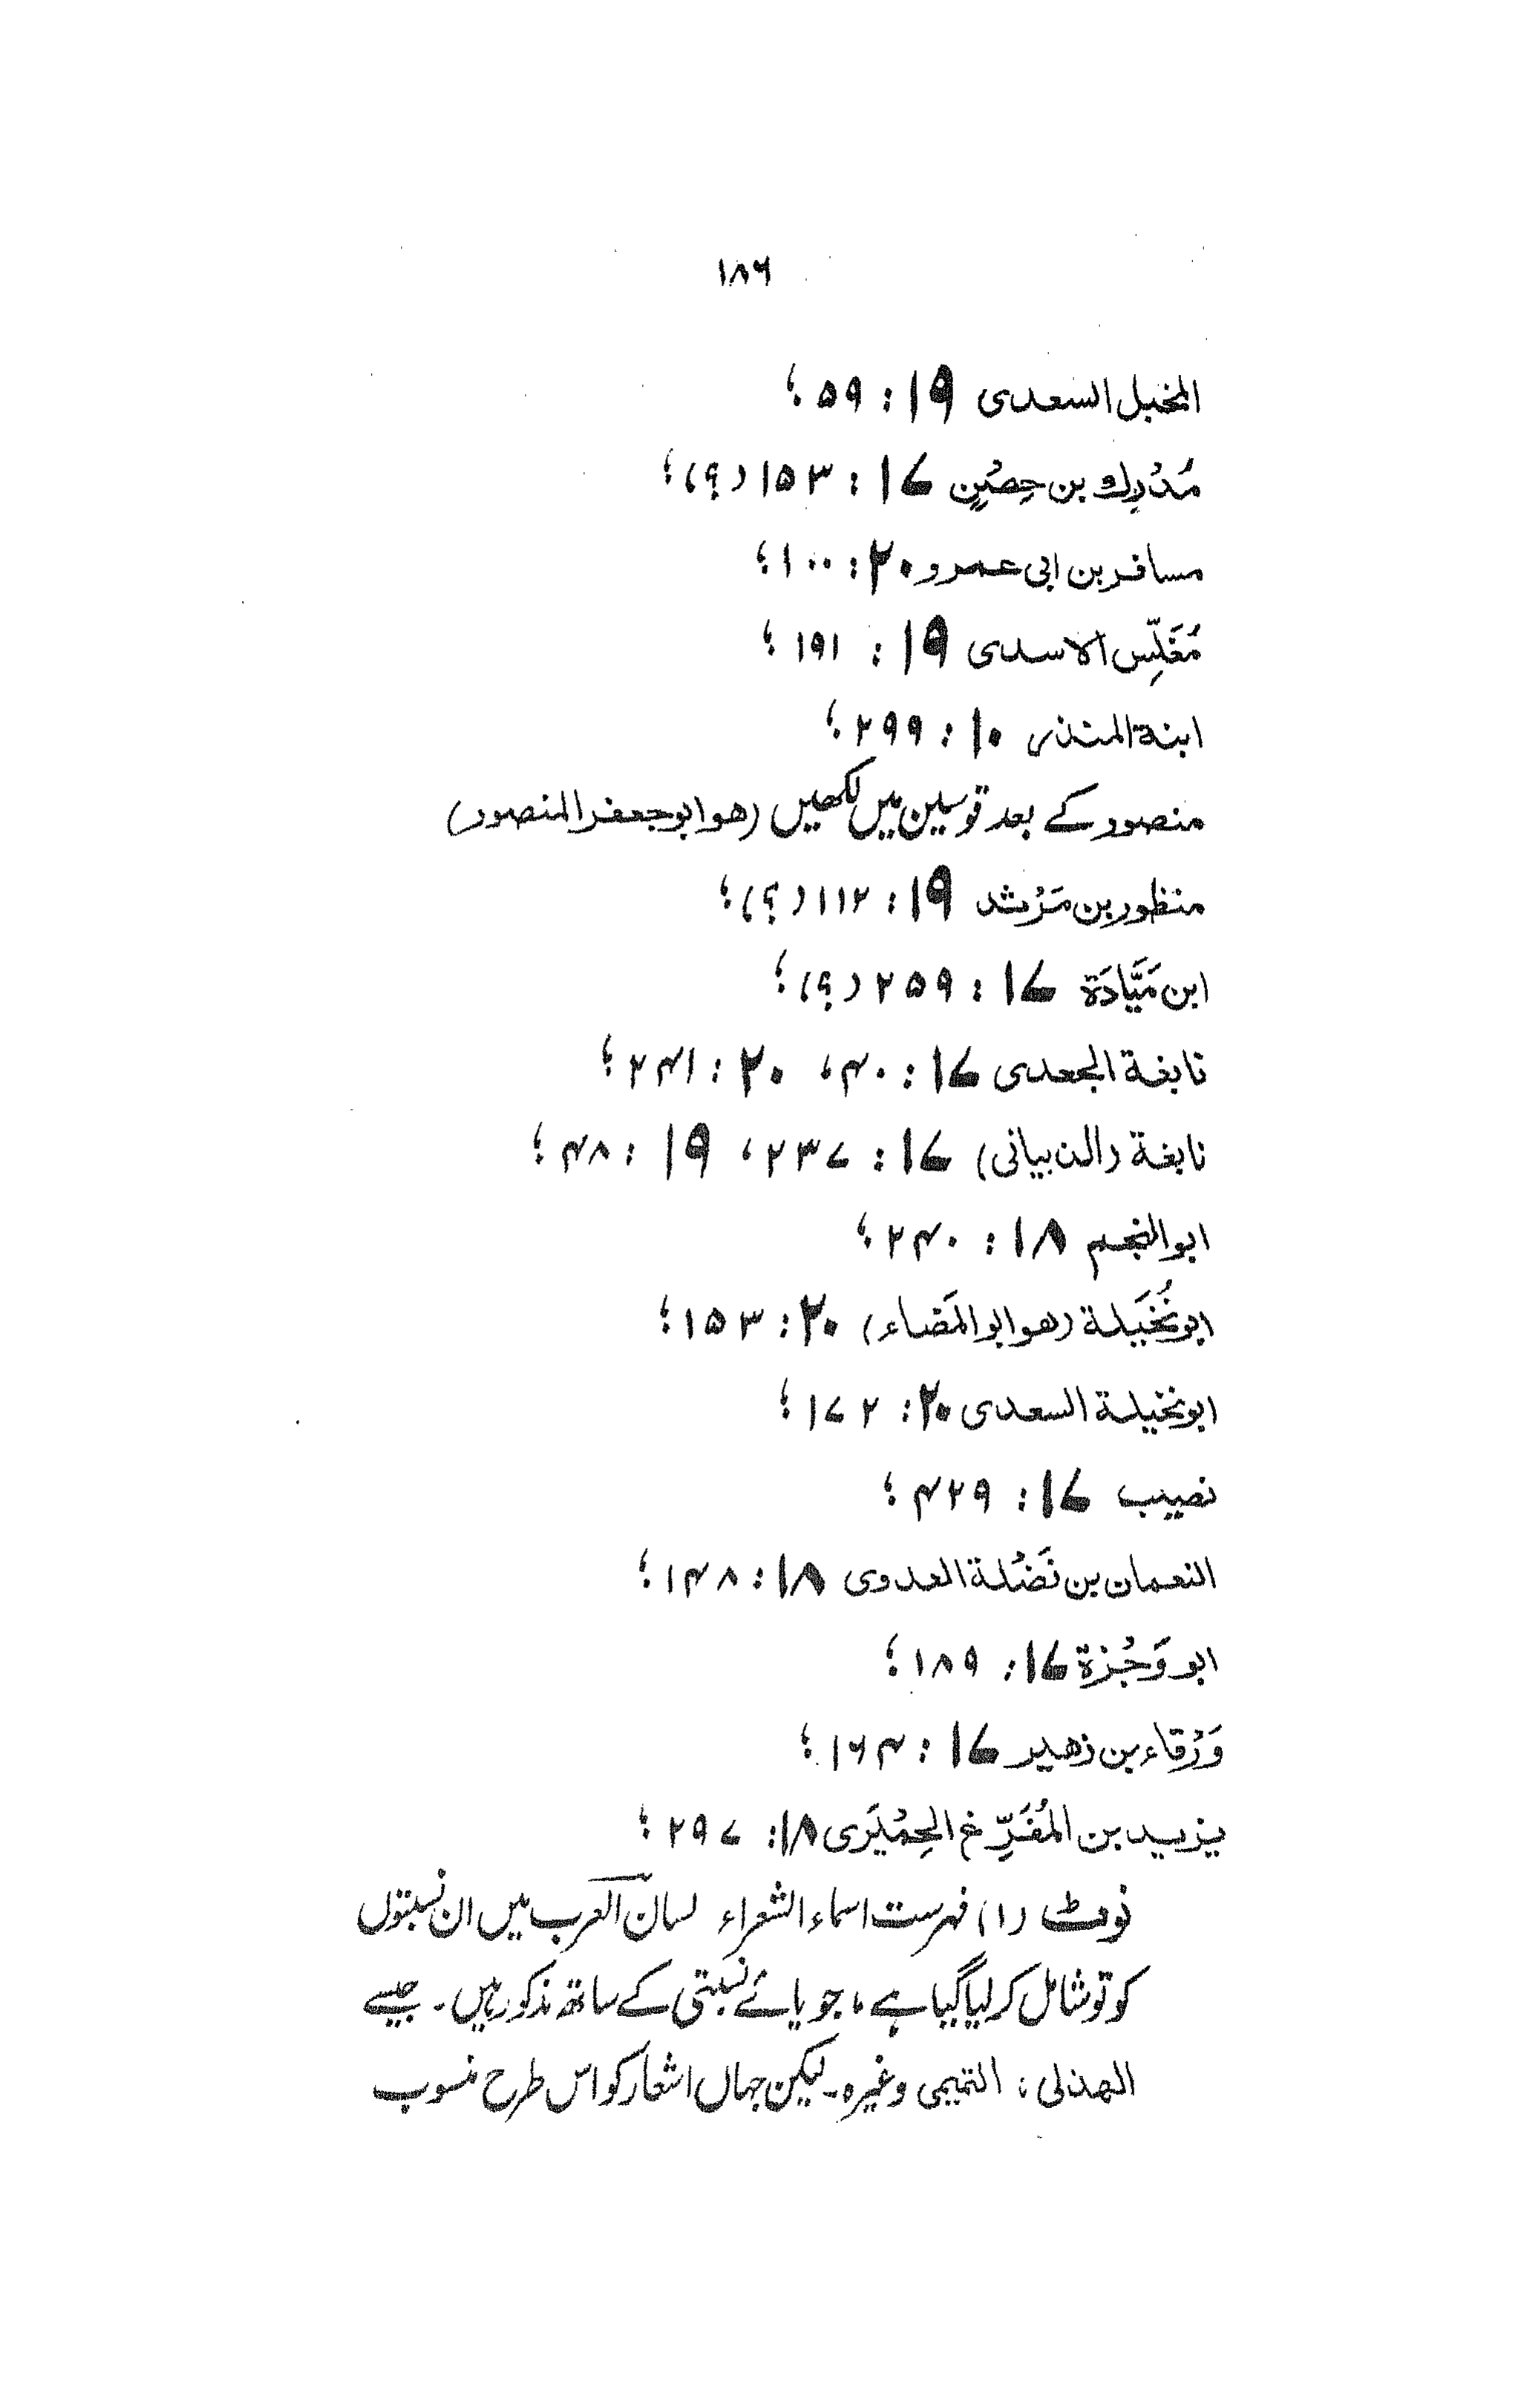 ۱۸۶
المخبل السعدی ۱۹ : ۵۹ ؛
مُدْرِك بن حِصْنٍ ۱۷ : ۱۵۳ (؟) ؛
مسافر بن ابی عمرو ۲۰ : ۱۰۰ ؛
مُغَلِّس الاسدی ۱۹ : ۱۹۱ ؛
ابنة المنذر ۱۰ : ۲۹۹ ؛
منصور کے بعد قوسین میں لکھیں (هو ابو جعفر المنصور)
منظور بن مَرْثد ۱۹ : ۱۱۲ (؟) ؛
ابن مَيَّادَة ۱۷ : ۲۵۹ (؟) ؛
نابغة الجعدی ۱۷ : ۴۰، ۲۰ : ۲۴۱ ؛
نابغة (الذبیانی) ۱۷ : ۲۳۷، ۱۹ : ۴۸ ؛
ابو النجم ۱۸ : ۲۴۰ ؛
ابو نُخَيلة (هو ابو المَضاء) ۲۰ : ۱۵۳ ؛
ابو نخيلة السعدی ۲۰ : ۱۷۲ ؛
نصیب ۱۷ : ۴۲۹ ؛
النعمان بن نَضْلة العدوی ۱۸ : ۱۴۸ ؛
ابو وَجْزة ۱۷ : ۱۸۹ ؛
وَرْقاء بن زهیر ۱۷ : ۱۶۴ ؛
یزید بن المُفَرِّغ الحِمْيَری ۱۸ : ۲۹۷ ؛
نوٹ (۱) فہرست اسماء الشعراء لسان العرب میں ان نسبتوں
کو تو شامل کر لیا گیا ہے، جو یائے نسبتی کے ساتھ مذکور ہیں۔ جیسے
الهذلی، التمیمی وغیرہ۔ لیکن جہاں اشعار کو اس طرح منسوب